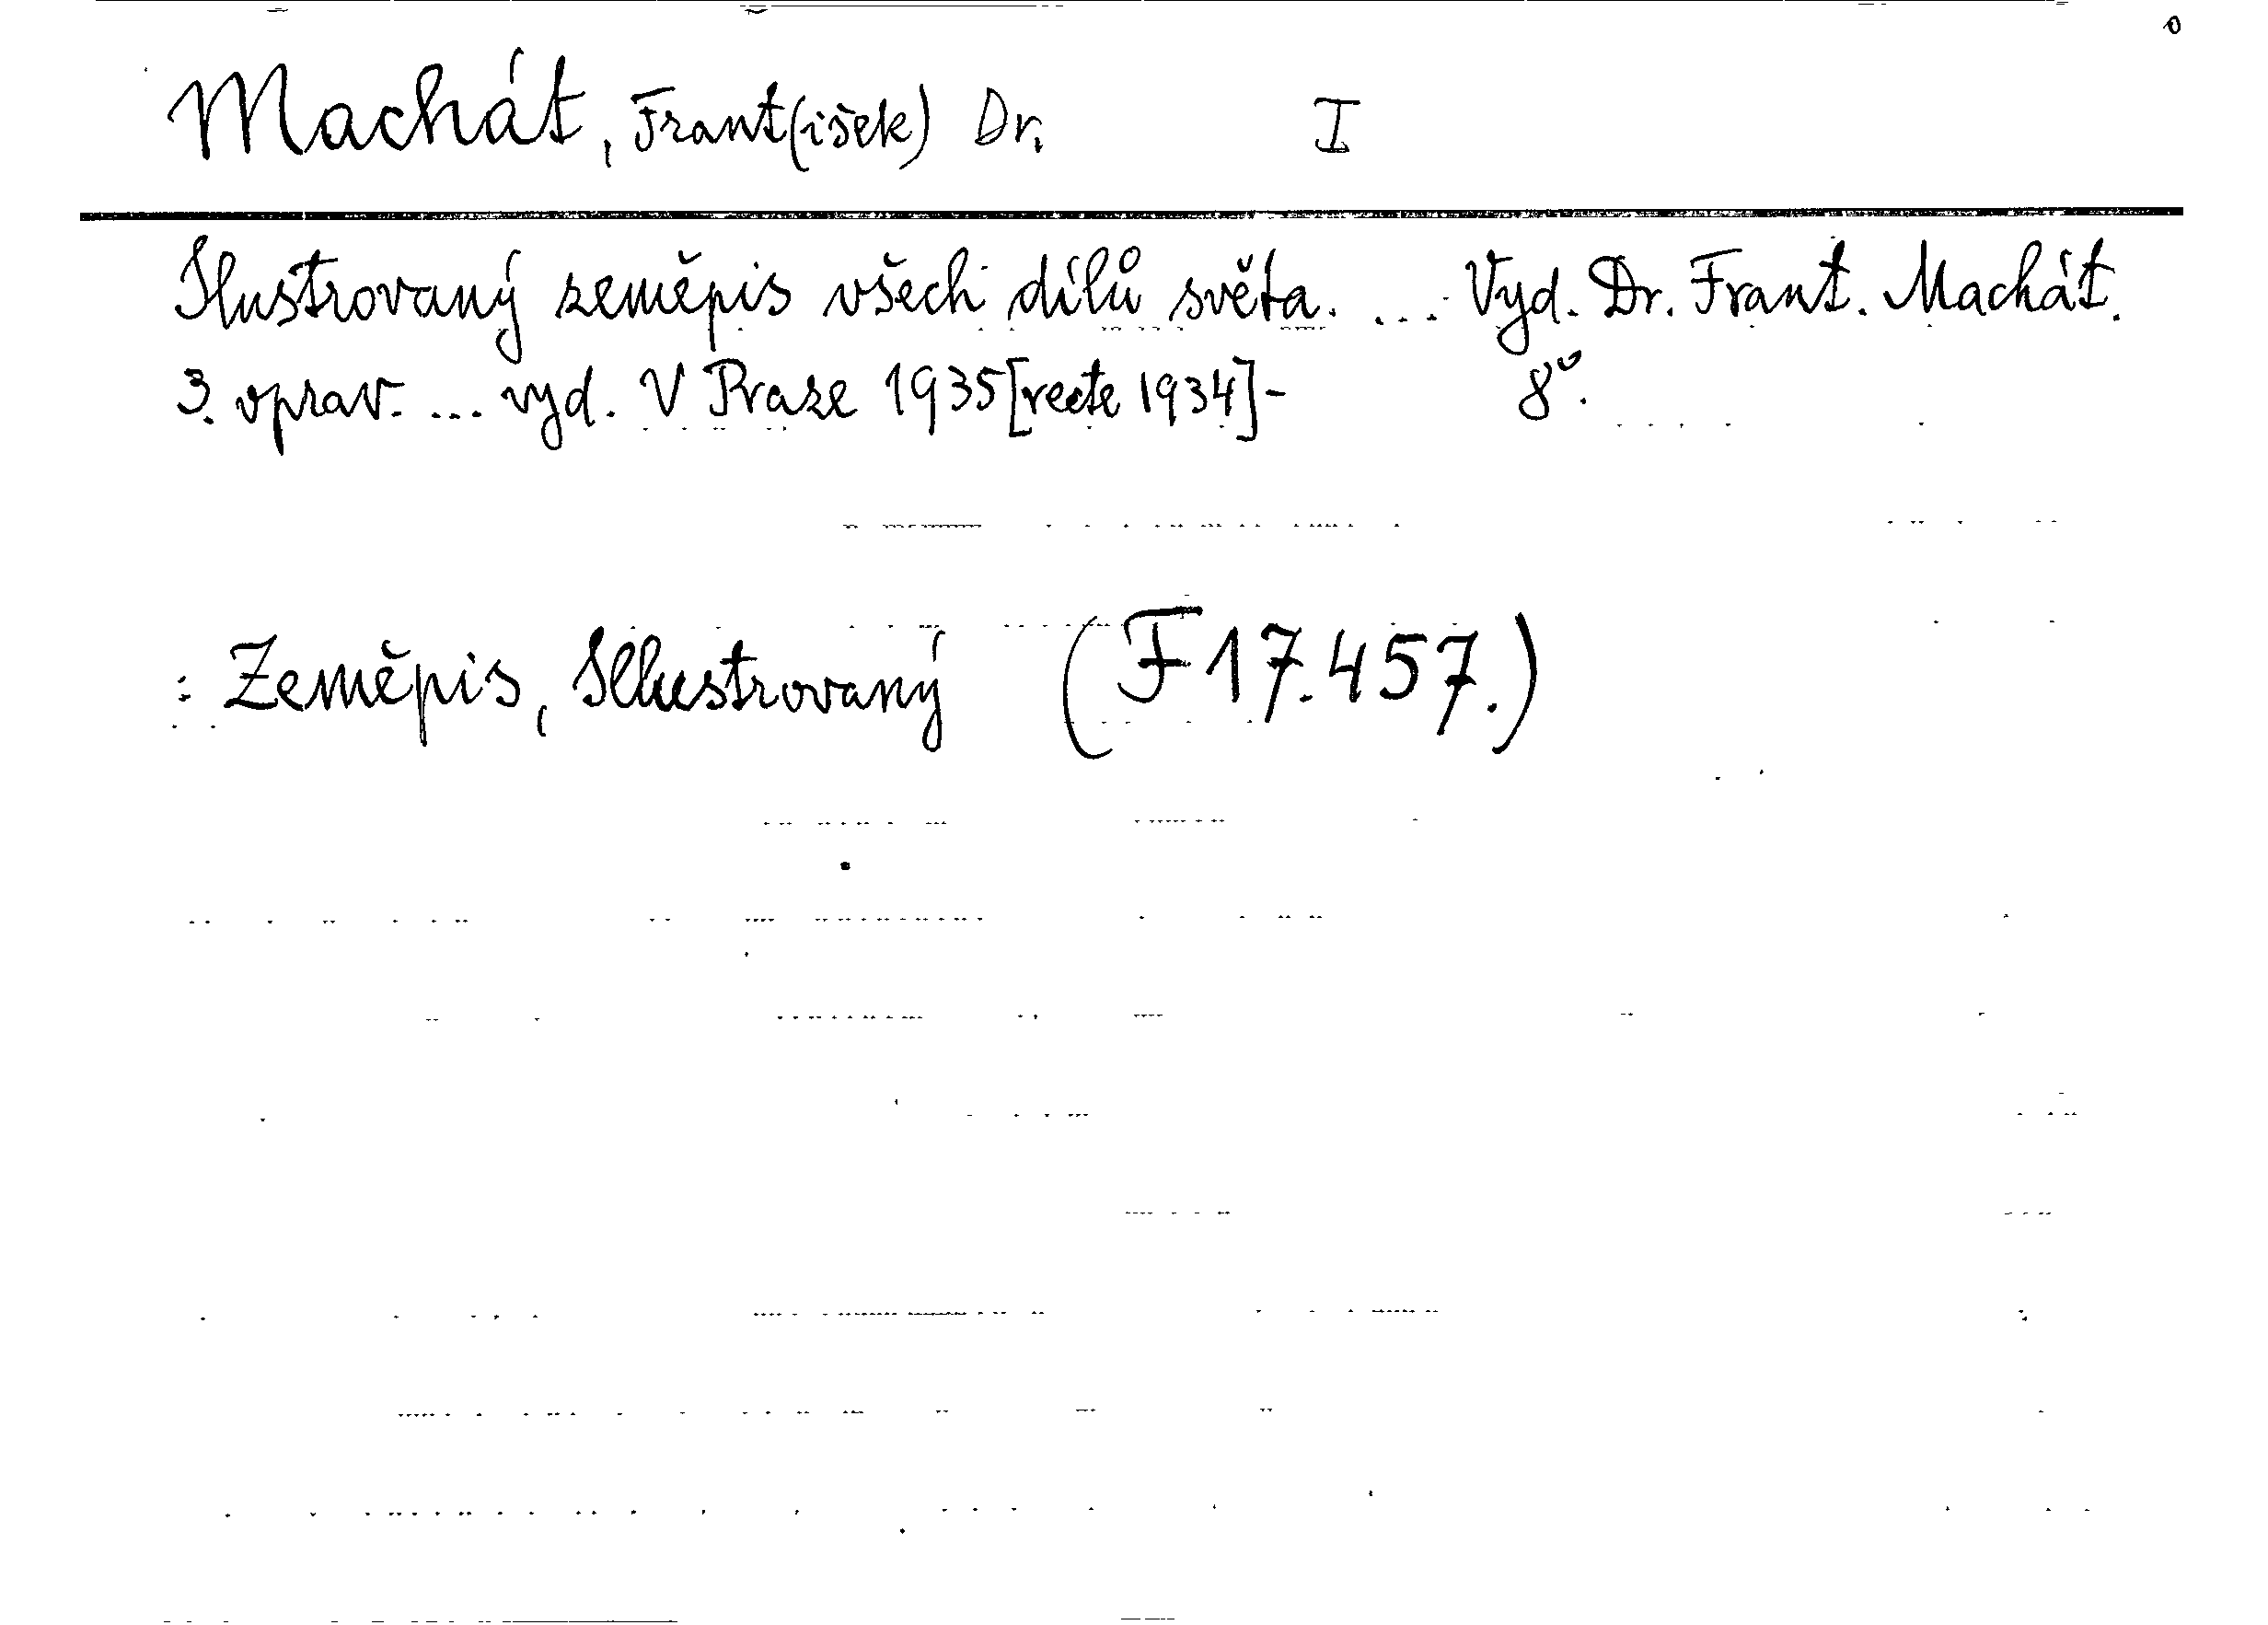 Machát, Frant(išek) Dr. I
Ilustrovaný zeměpis všech dílů světa. ... Vyd. Dr. Frant. Machát.
3. oprav. ... vyd. V Praze 1935[recte 1934]- 8°.
: Zeměpis, Illustrovaný (F 17.457.)